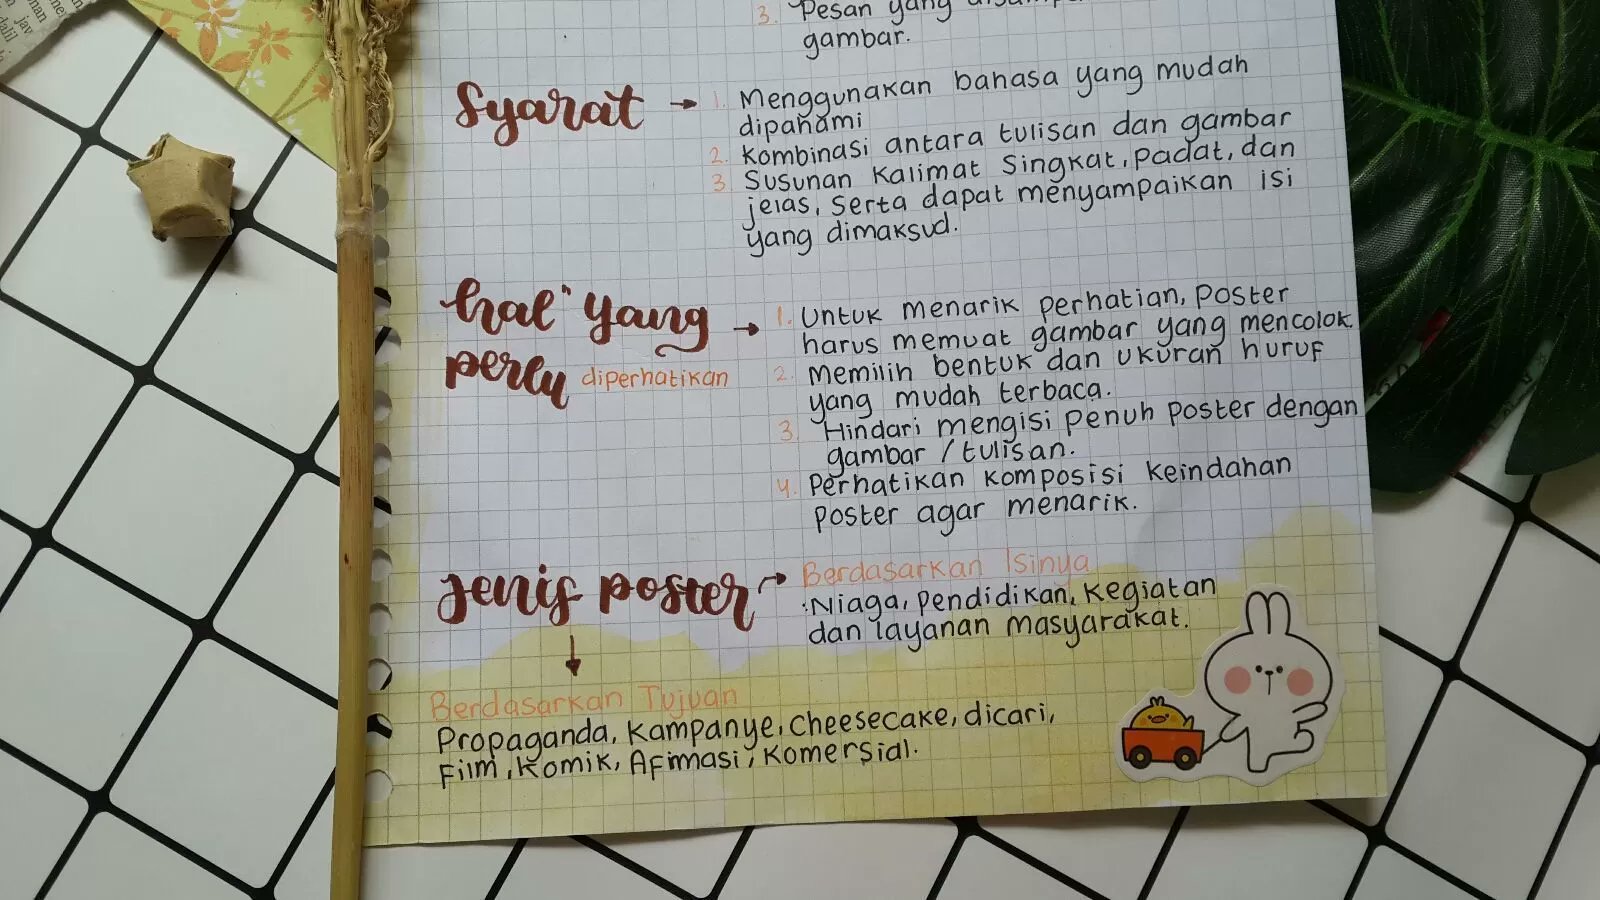 3. Pesan yang
gambar.
Syarat → 1. Menggunakan bahasa yang mudah
dipahami
2. Kombinasi antara tulisan dan gambar
3. Susunan kalimat singkat, padat, dan
jelas, serta dapat menyampaikan isi
yang dimaksud.
hal" yang
perlu diperhatikan
→ 1. Untuk menarik perhatian, poster
harus memuat gambar yang mencolok.
2. Memilih bentuk dan ukuran huruf
yang mudah terbaca.
3. Hindari mengisi penuh poster dengan
gambar / tulisan.
4. Perhatikan komposisi keindahan
poster agar menarik.
Jenis poster → Berdasarkan Isinya
: Niaga, pendidikan, kegiatan
dan layanan masyarakat.
↓
Berdasarkan Tujuan
Propaganda, kampanye, cheesecake, dicari,
Film, komik, Afirmasi, komersial.